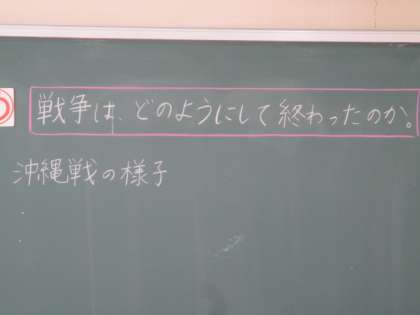 戦争は、どのようにして終わったのか。
沖縄戦の様子